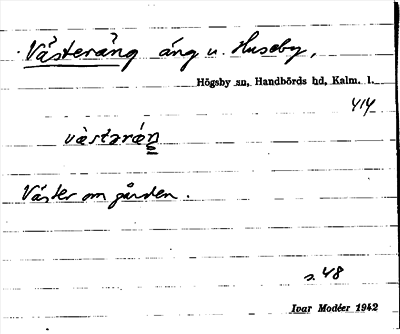 Västeräng äng u. Huseby,
Högsby sn, Handbörds hd, Kalm. l.
414
Väster om gården.
s. 48
Ivar Modéer 1942